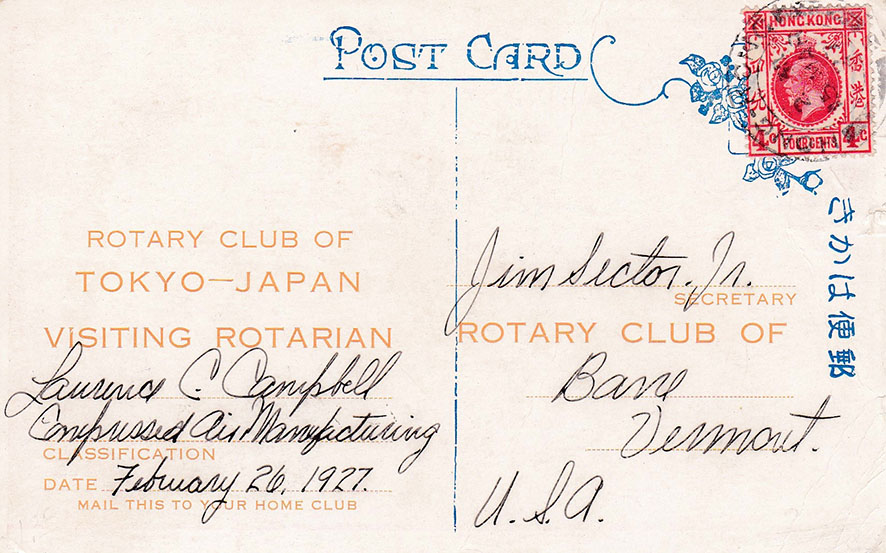 POST CARD
HONG KONG
香港
4C
FOUR CENTS
4C
きかは便郵
ROTARY CLUB OF
TOKYO—JAPAN
VISITING ROTARIAN
Laurence C. Campbell
Compressed Air Manufacturing
CLASSIFICATION
DATE February 26, 1927.
MAIL THIS TO YOUR HOME CLUB
Jim Sector, Jr.
SECRETARY
ROTARY CLUB OF
Barre
Vermont.
U.S.A.